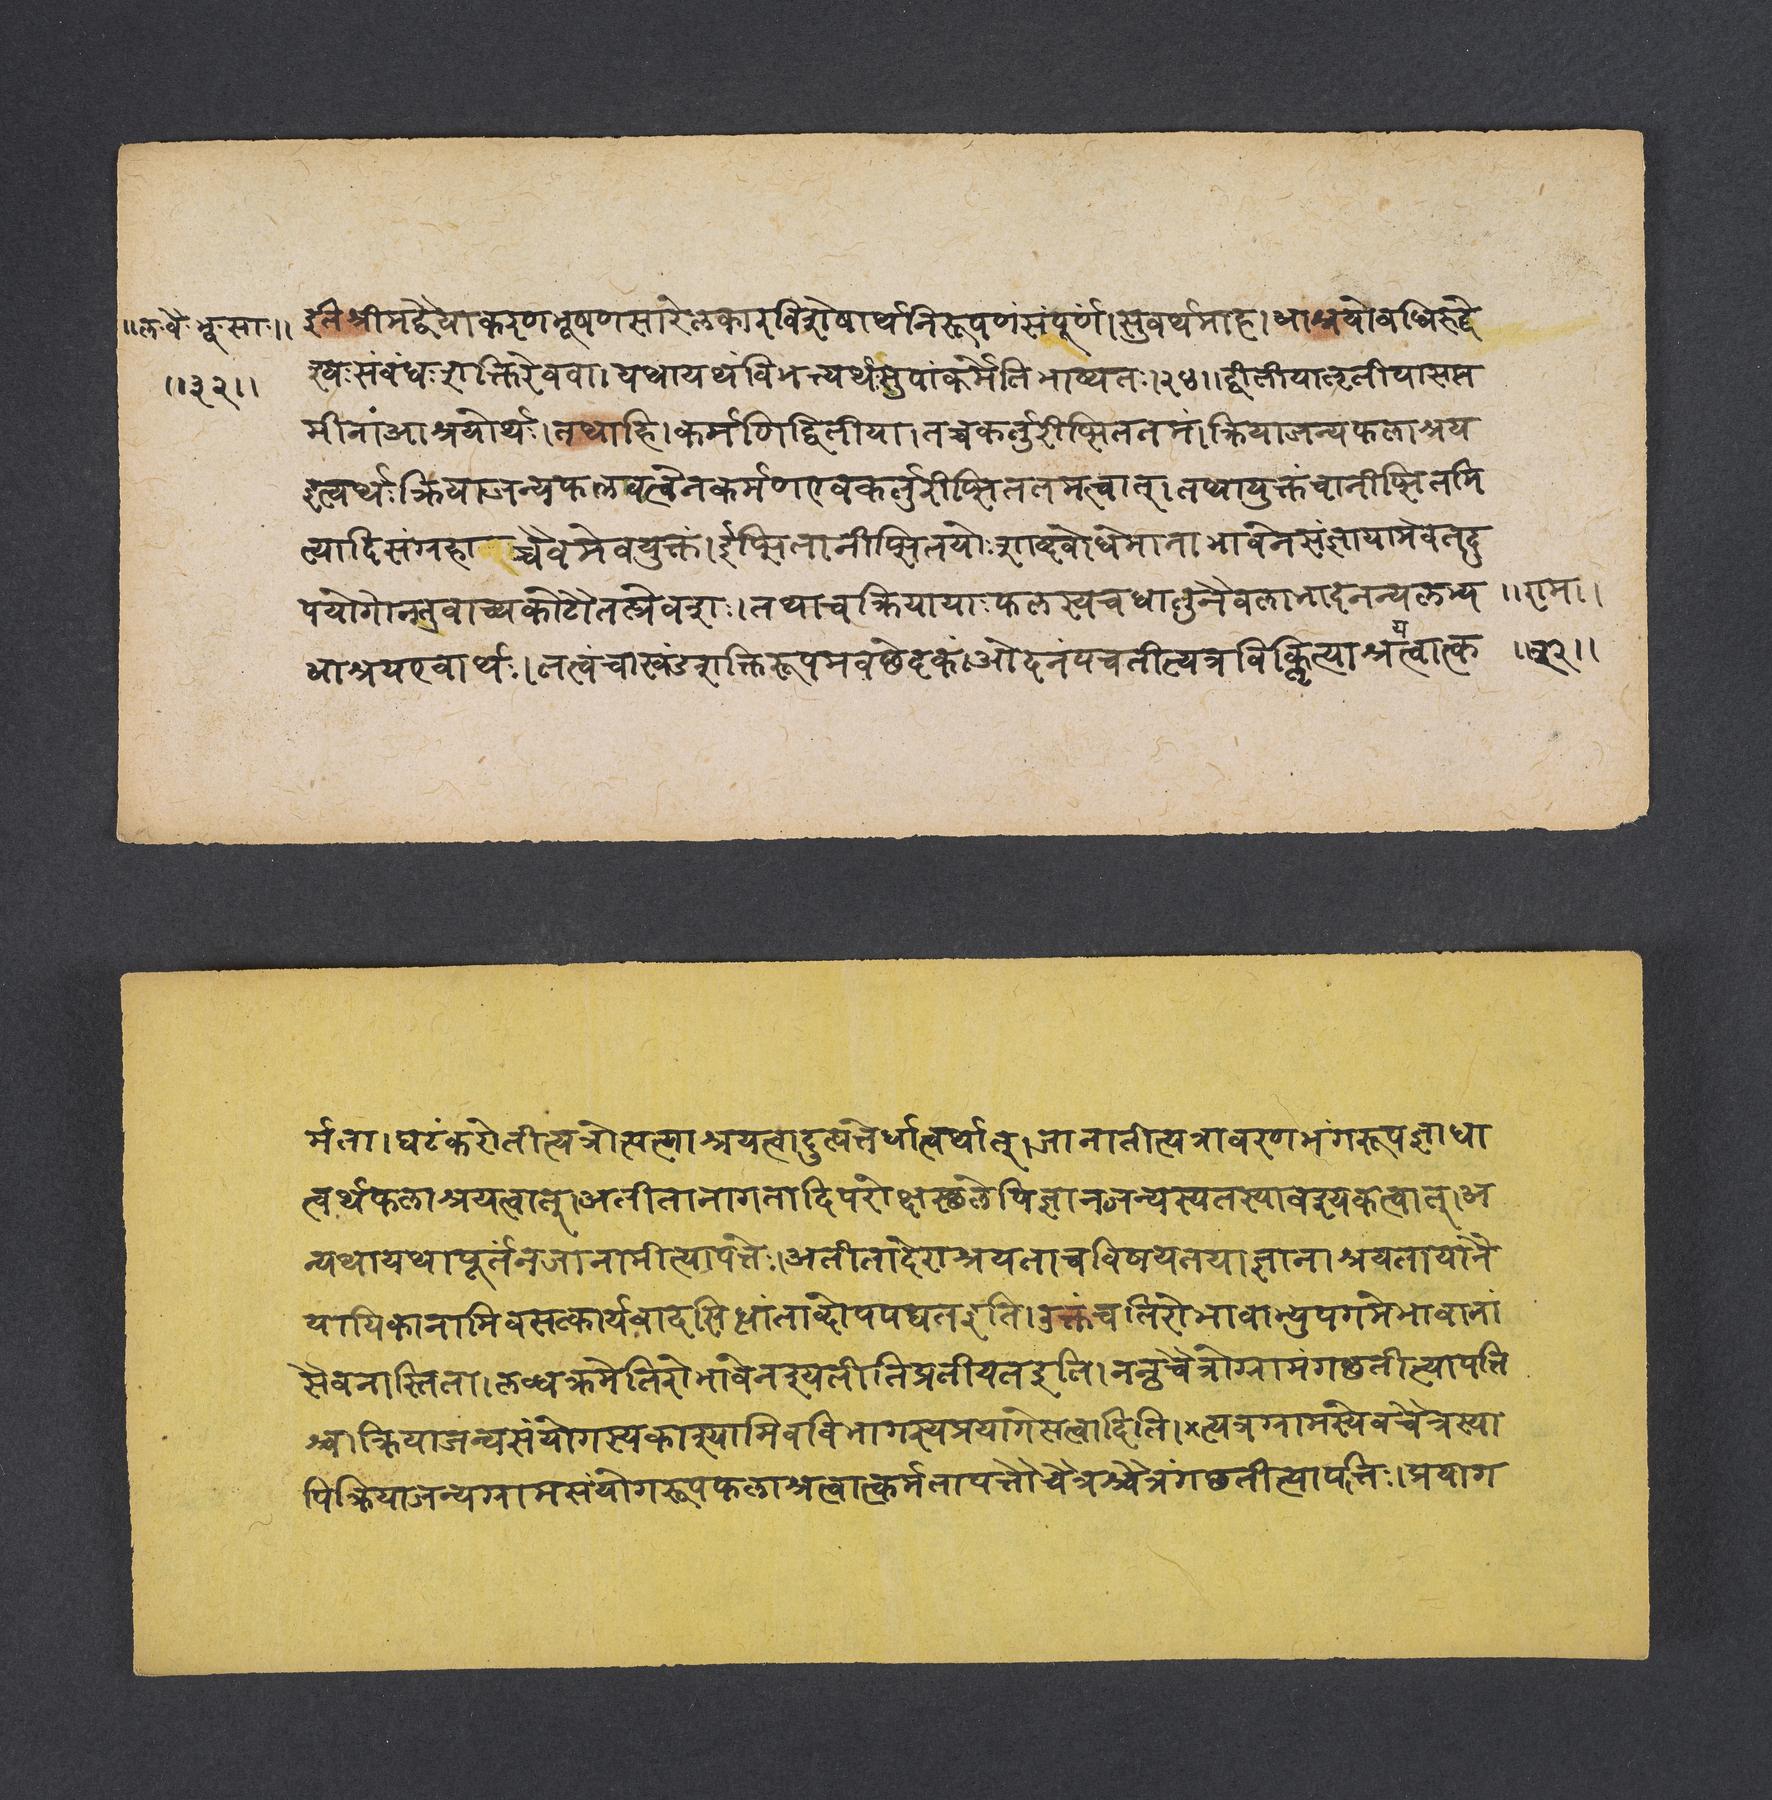 ॥ल·वै·भू·सा·॥
॥३२॥
इतिश्रीमद्वैयाकरणभूषणसारेलकारविशेषार्थनिरूपणंसंपूर्णं।सुबर्थमाह।आश्रयोवधिरुद्दे
श्यःसंबंधःशक्तिरेववा।यथायथंविभक्त्यर्थःसुपांकर्मेतिभाष्यतः।२४॥द्वीतीयातृतीयासप्त
मीनांआश्रयोर्थः।तथाहि।कर्मणिद्वितीया।तच्चकर्तुरीप्सिततमं।क्रियाजन्यफलाश्रय
इत्यर्थःक्रियाजन्यफलवत्वेनकर्मणएवकर्तुरीप्सिततमत्वात्।तथायुक्तंचानीप्सितमि
त्यादिसंग्रहाच्चैवमेवयुक्तं।ईप्सितानीप्सितयोःशाब्दबोधेमानाभावेनसंज्ञायामेवतदु
पयोगोनतुवाच्यकोटौतत्प्रवेशः।तथाचक्रियायाःफलस्यचधातुनैवलाभादनन्यलभ्य
आश्रयएवार्थः।तत्वंचाखंडशक्तिरूपमवछेदकं।ओदनंपचतीत्यत्रविक्लित्याश्रयत्वात्क
॥राम॥
॥३२॥
र्मता।घटंकरोतीत्यत्रोत्पत्त्याश्रयत्वादुत्पत्तेर्धात्वर्थात्।जानातीत्यत्रावरणभंगरूपज्ञाधा
त्वर्थफलाश्रयत्वात्।अतीतानागतादिपरोक्षस्छलेपिज्ञानजन्यस्यतस्यावश्यकत्वात्।अ
न्यथायथापूर्तंनजानामीत्यापत्तेः।अतीतादेराश्रयताचविषयतयाज्ञानाश्रयतायांनै
यायिकानामिवसत्कार्यवादसिधांताद्वोपपद्यतइति।उक्तंचतिरोभावाभ्युपगमेभावानां
सैवनास्तिता।लब्धक्रमेतिरोभावेनश्यतीतिप्रतीयतइति।नन्वचैत्रोग्रामंगछतीत्यापत्ति
श्च।क्रियाजन्यसंयोगस्यकाश्यामिवविभागस्यप्रयागेसत्वादिति।×त्यत्रग्रामस्येवचैत्रस्या
पिक्रियाजन्यग्रामसंयोगरूपफलाश्रत्वात्कर्मतापत्तौचैत्रश्चैत्रंगछतीत्यापत्तिः।प्रयाग